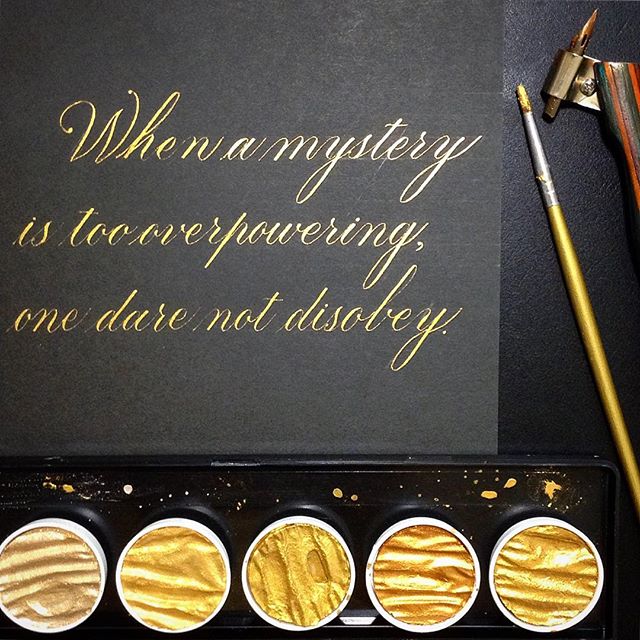 When a mystery
is too overpowering,
one dare not disobey.